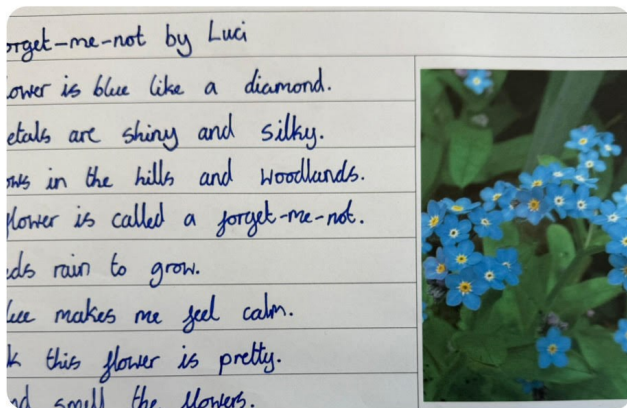 orget-me-not by Luci
lower is blue like a diamond.
etals are shiny and silky.
ows in the hills and woodlands.
flower is called a forget-me-not.
eds rain to grow.
lue makes me feel calm.
k this flower is pretty.
nd smell the flowers.